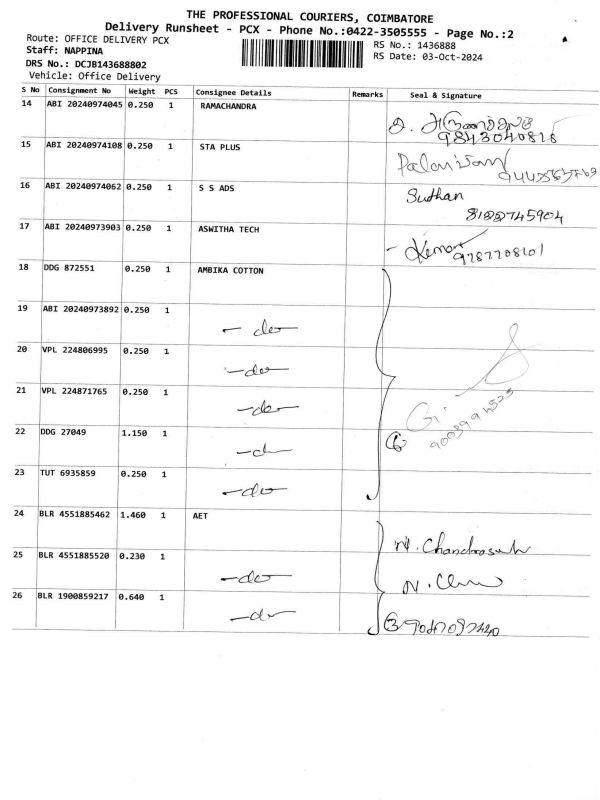 THE PROFESSIONAL COURIERS, COIMBATORE
Delivery Runsheet - PCX - Phone No.:0422-3505555 - Page No.:2
Route: OFFICE DELIVERY PCX
RS No.: 1436888
Staff: NAPPINA
RS Date: 03-Oct-2024
DRS No.: DCJB143688802
Vehicle: Office Delivery
S No Consignment No Weight PCS Consignee Details Remarks Seal & Signature
14 ABI 20240974045 0.250 1 RAMACHANDRA
9843040816
15 ABI 20240974108 0.250 1 STA PLUS
16 ABI 20240974062 0.250 1 S S ADS Suthan
8122745904
17 ABI 20240973903 0.250 1 ASWITHA TECH
9787708101
18 DDG 872551 0.250 1 AMBIKA COTTON
19 ABI 20240973892 0.250 1 -do-
20 VPL 224806995 0.250 1 -do-
21 VPL 224871765 0.250 1 -do-
22 DDG 27049 1.150 1 -do-
23 TUT 6935859 0.250 1 -do-
24 BLR 4551885462 1.460 1 AET
25 BLR 4551885520 0.230 1 -do-
26 BLR 1900859217 0.640 1 -do-